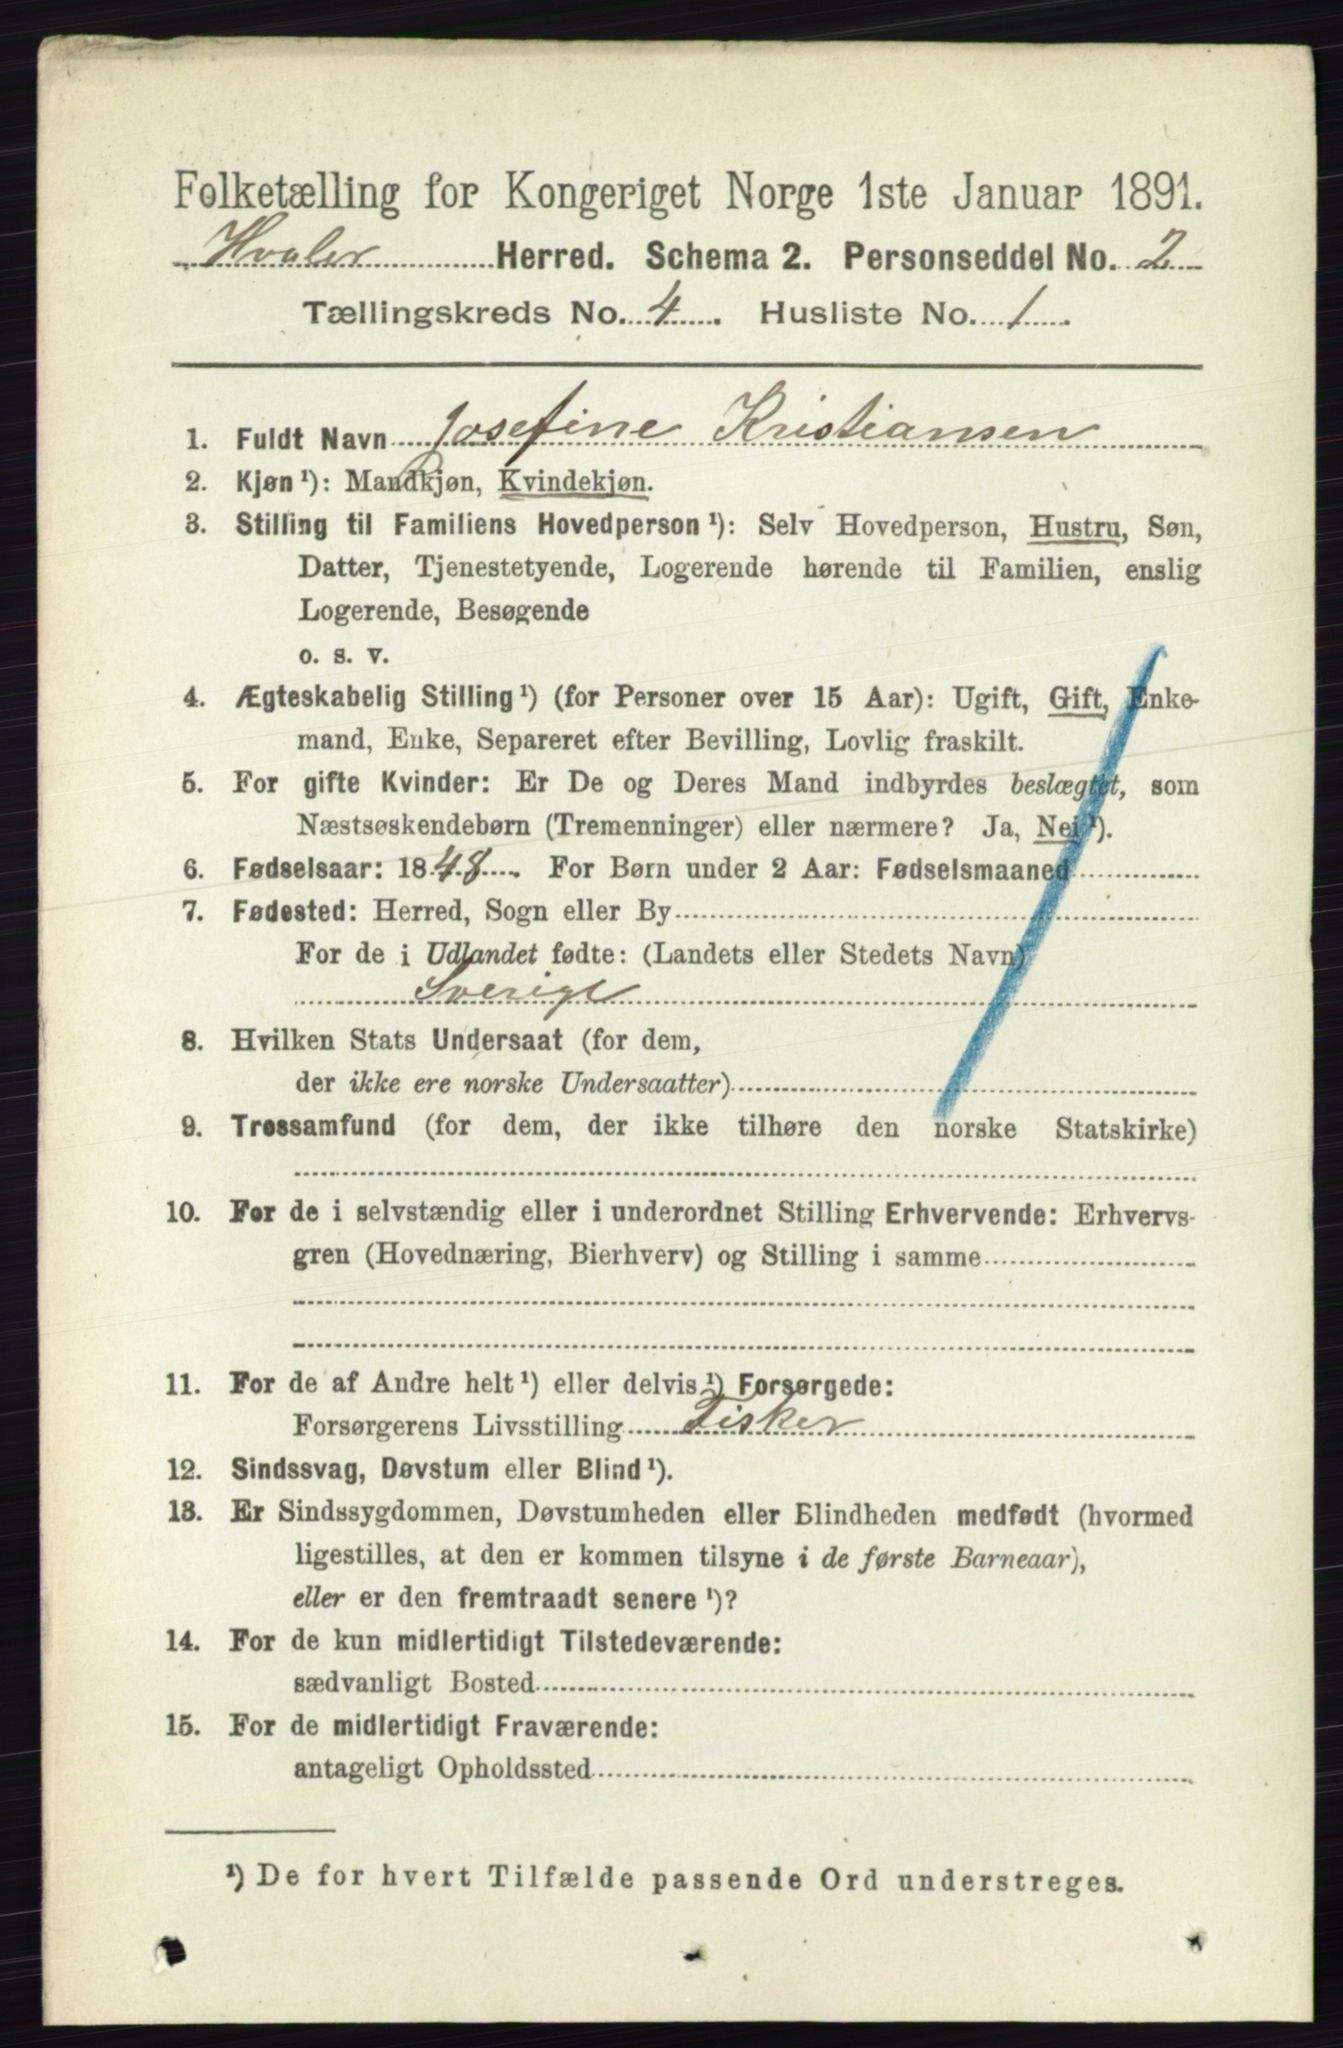 Folketælling for Kongeriget Norge 1ste Januar 1891.
Hvaler Herred. Schema 2. Personseddel No. 2
Tællingskreds No. 4. Husliste No. 1.
1. Fuldt Navn Josefine Kristiansen
2. Kjøn¹): Mandkjøn, Kvindekjøn.
3. Stilling til Familiens Hovedperson¹): Selv Hovedperson, Hustru, Søn,
Datter, Tjenestetyende, Logerende hørende til Familien, enslig
Logerende, Besøgende
o. s. v.
4. Ægteskabelig Stilling¹) (for Personer over 15 Aar): Ugift, Gift, Enke-
mand, Enke, Separeret efter Bevilling, Lovlig fraskilt.
5. For gifte Kvinder: Er De og Deres Mand indbyrdes beslægtet, som
Næstsøskendebørn (Tremenninger) eller nærmere? Ja, Nei¹).
6. Fødselsaar: 1848. For Børn under 2 Aar: Fødselsmaaned
7. Fødested: Herred, Sogn eller By
For de i Udlandet fødte: (Landets eller Stedets Navn)
Sverige
8. Hvilken Stats Undersaat (for dem,
der ikke ere norske Undersaatter)
9. Trossamfund (for dem, der ikke tilhøre den norske Statskirke)
10. For de i selvstændig eller i underordnet Stilling Erhvervende: Erhvervs-
gren (Hovednæring, Bierhverv) og Stilling i samme
11. For de af Andre helt¹) eller delvis¹) Forsørgede:
Forsørgerens Livsstilling Fisker
12. Sindssvag, Døvstum eller Blind¹).
13. Er Sindssygdommen, Døvstumheden eller Blindheden medfødt (hvormed
ligestilles, at den er kommen tilsyne i de første Barneaar),
eller er den fremtraadt senere¹)?
14. For de kun midlertidigt Tilstedeværende:
sædvanligt Bosted
15. For de midlertidigt Fraværende:
antageligt Opholdssted
¹) De for hvert Tilfælde passende Ord understreges.